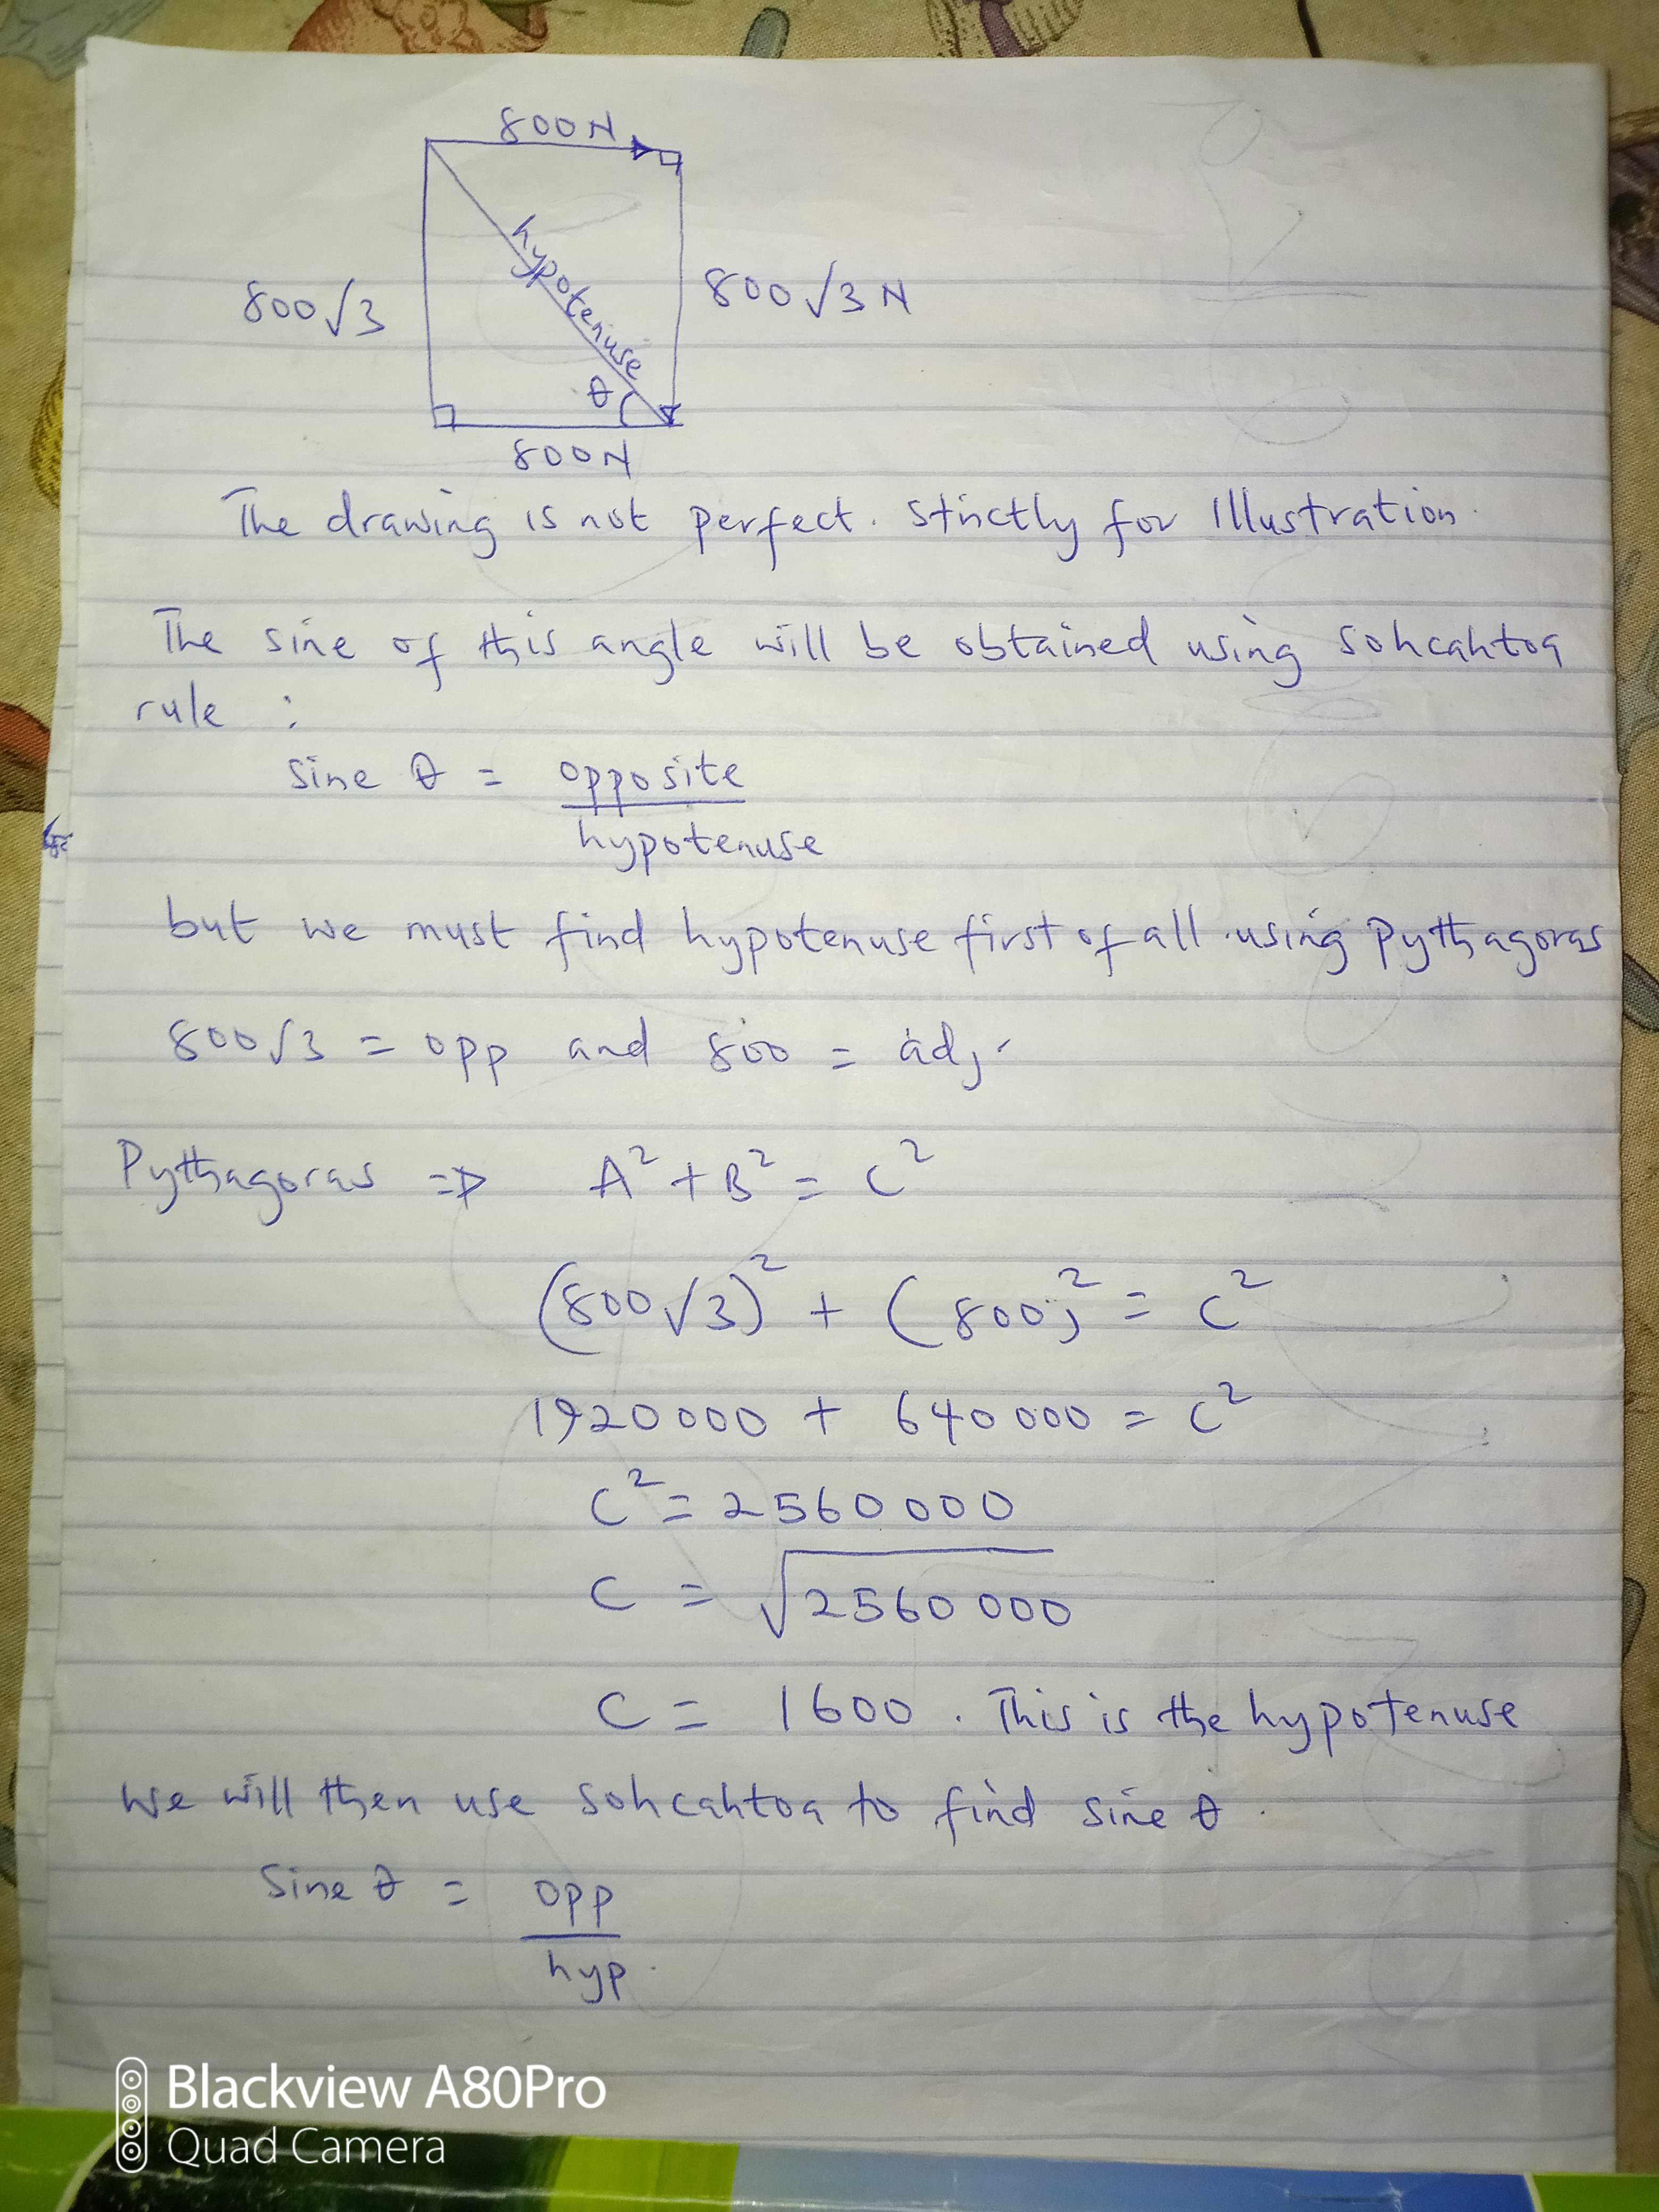 800N
hypotenuse
800√3
800√3 N
θ
800N
The drawing is not perfect. Strictly for Illustration.
The sine of this angle will be obtained using Sohcahtoa
rule :
Sine θ = opposite
hypotenuse
but we must find hypotenuse first of all using Pythagoras
800√3 = opp and 800 = adj.
Pythagoras => A² + B² = C²
(800√3)² + (800)² = C²
1920000 + 640000 = C²
C² = 2560000
C = √2560000
C = 1600. This is the hypotenuse
We will then use Sohcahtoa to find Sine θ.
Sine θ = opp
hyp.
Blackview A80Pro
Quad Camera